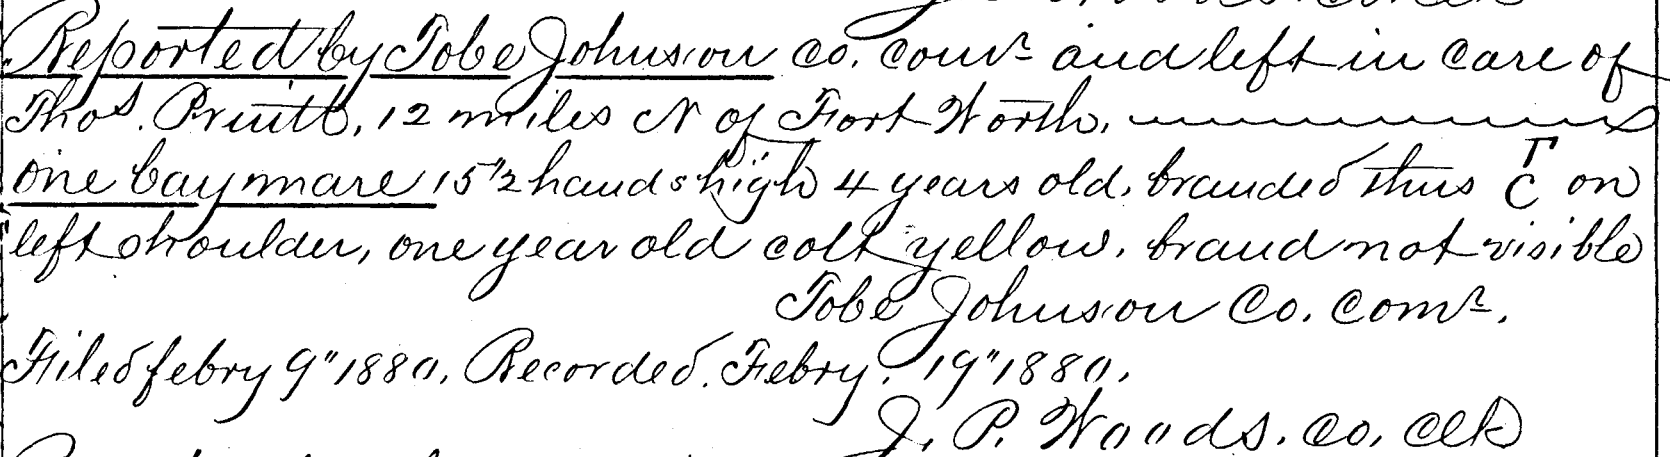 Reported by Tobe Johnson co. comr and left in care of
Thos. Pruitt, 12 miles N of Fort Worth,
one bay mare 15 1/2 hands high 4 years old, branded thus Γ C on
left shoulder, one year old colt yellow, brand not visible
Tobe Johnson Co. Comr.
Filed febry 9" 1880, Recorded. Febry. 19" 1880,
J. P. Woods. Co. Clk